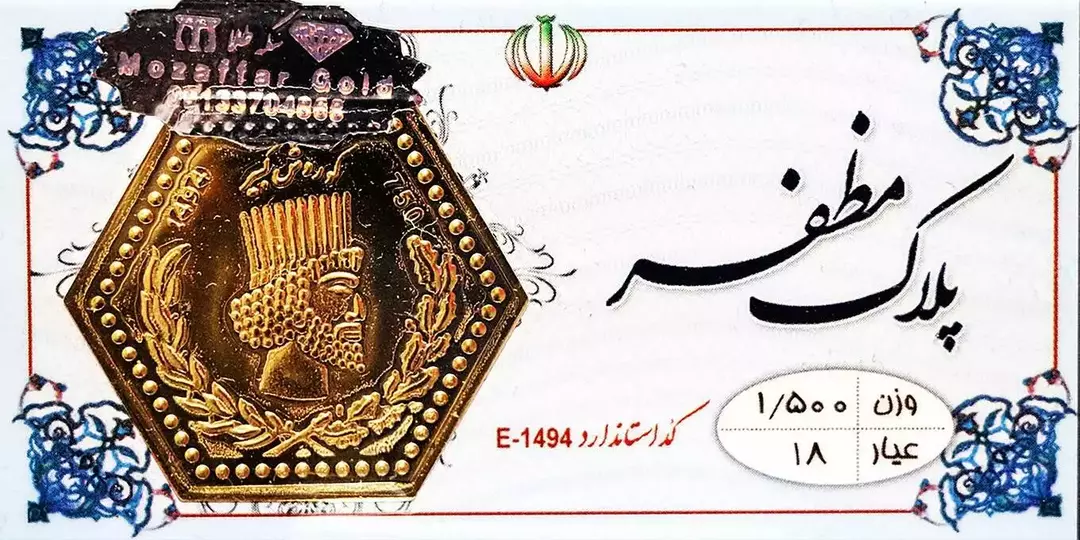 Mozaffar Gold
09133704668
کوروش کبیر
1494
T750
پلاک مظفر
وزن ۱/۵۰۰
عیار ۱۸
کد استاندارد E-1494